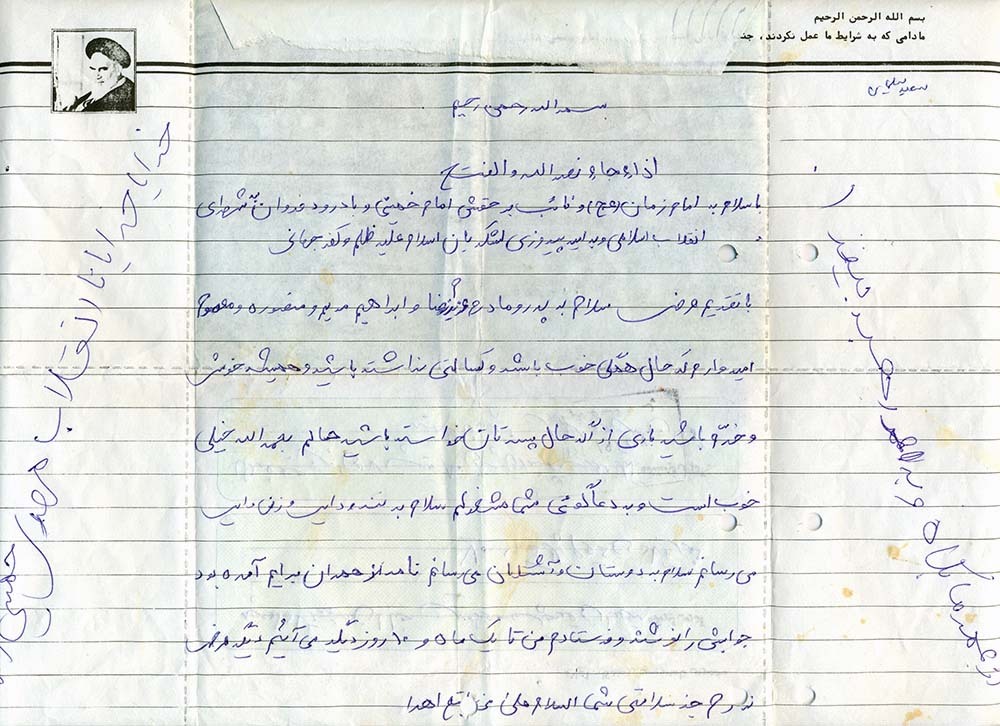 بسم الله الرحمن الرحیم
مادامی که به شرایط ما عمل نکردند، جنـ
بسم الله رحمن رحیم
اذا جاء نصر الله والفتح
با سلام به امام زمان (عج) و نائب بر حقش امام خمینی و با درود فروان به شهدای
انقلاب اسلامی و به امید پیروزی لشگریان اسلام علیه ظلم و کفر جهانی
با تقدیم عرض سلام به پدر و مادرم و ابراهیم مریم و منصوره و معصومه
امیدوارم که حال همگی خوب باشد و کسالتی نداشته باشید و همیشه خوش
و خرم باشید باری از اگه حال پسرتان خواسته باشید حالم بحمد الله خیلی
خوب است و به دعاگوئی شما مشغولم سلام به ننه و دایی و زن دایی
می رسانم سلام به دوستان و آشنایان می رسانم نامه از همدان برایم آمده بود
جوابش را نوشتم و فرستادم من تا یک ماه و ۱۰ روز دیگه می آئیم دیگه عرضی
ندارم جز سلامتی شما السلام علی عباد اهدا
خدایا خدایا تا انقلاب مهدی
خمینی